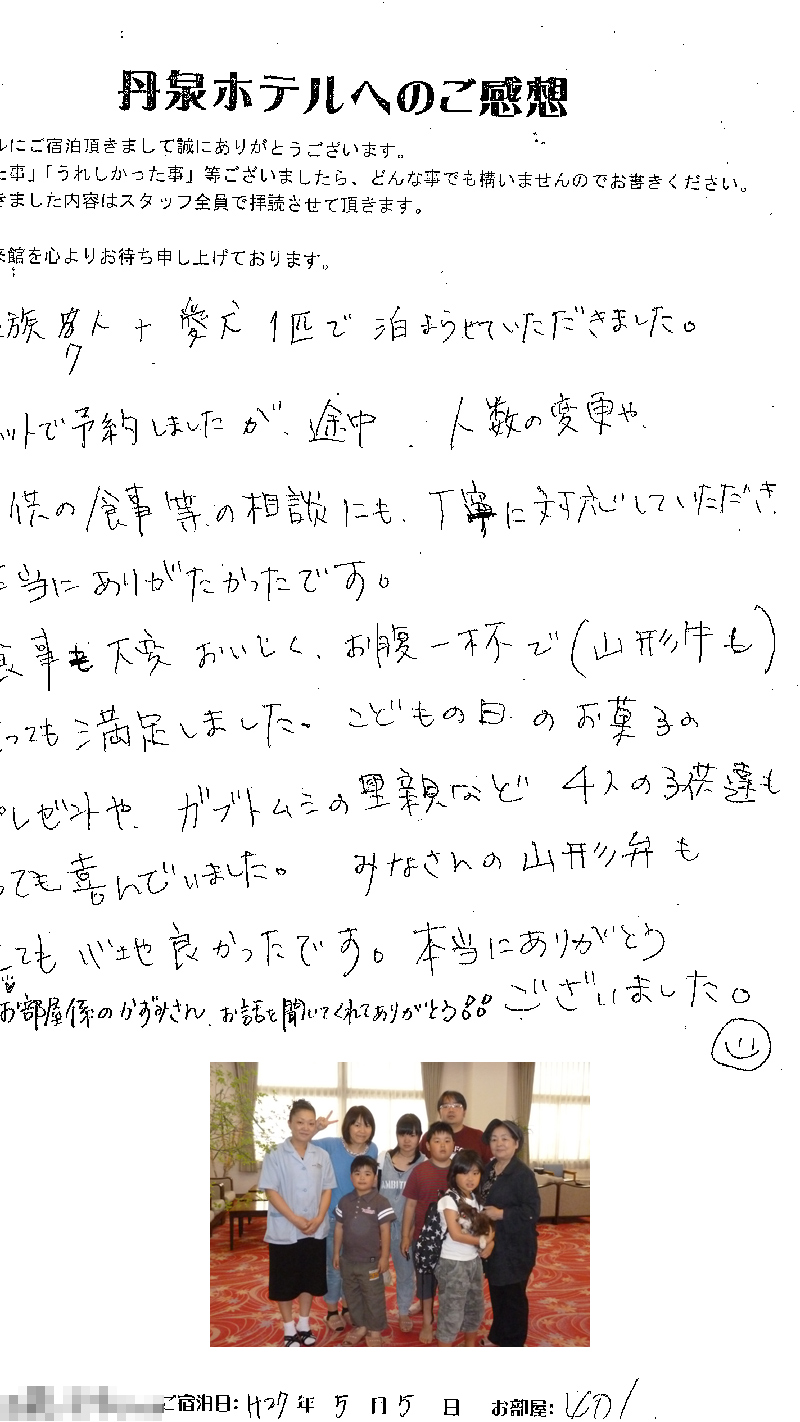 丹泉ホテルへのご感想
ルにご宿泊頂きまして誠にありがとうございます。
た事」「うれしかった事」等ございましたら、どんな事でも構いませんのでお書きください。
きました内容はスタッフ全員で拝読させて頂きます。
来館を心よりお待ち申し上げております。
族 人 + 愛犬 1匹で 泊まらせていただきました。
7
ットで予約しましたが、途中、人数の変更や、
供の食事等の相談にも、丁寧に対応していただき
本当にありがたかったです。
食事も大変おいしく、お腹一杯で(山形牛も)
とっても満足しました。こどもの日のお菓子の
プレゼントや、カブトムシの里親など 4人の子供達も
とても喜んでいました。 みなさんの山形弁も
とても心地良かったです。本当にありがとう
ございました。
お部屋係のかずみさん、お話を聞いてくれてありがとう
ご宿泊日: H27 年 5 月 5 日 お部屋: 601
AMBIT